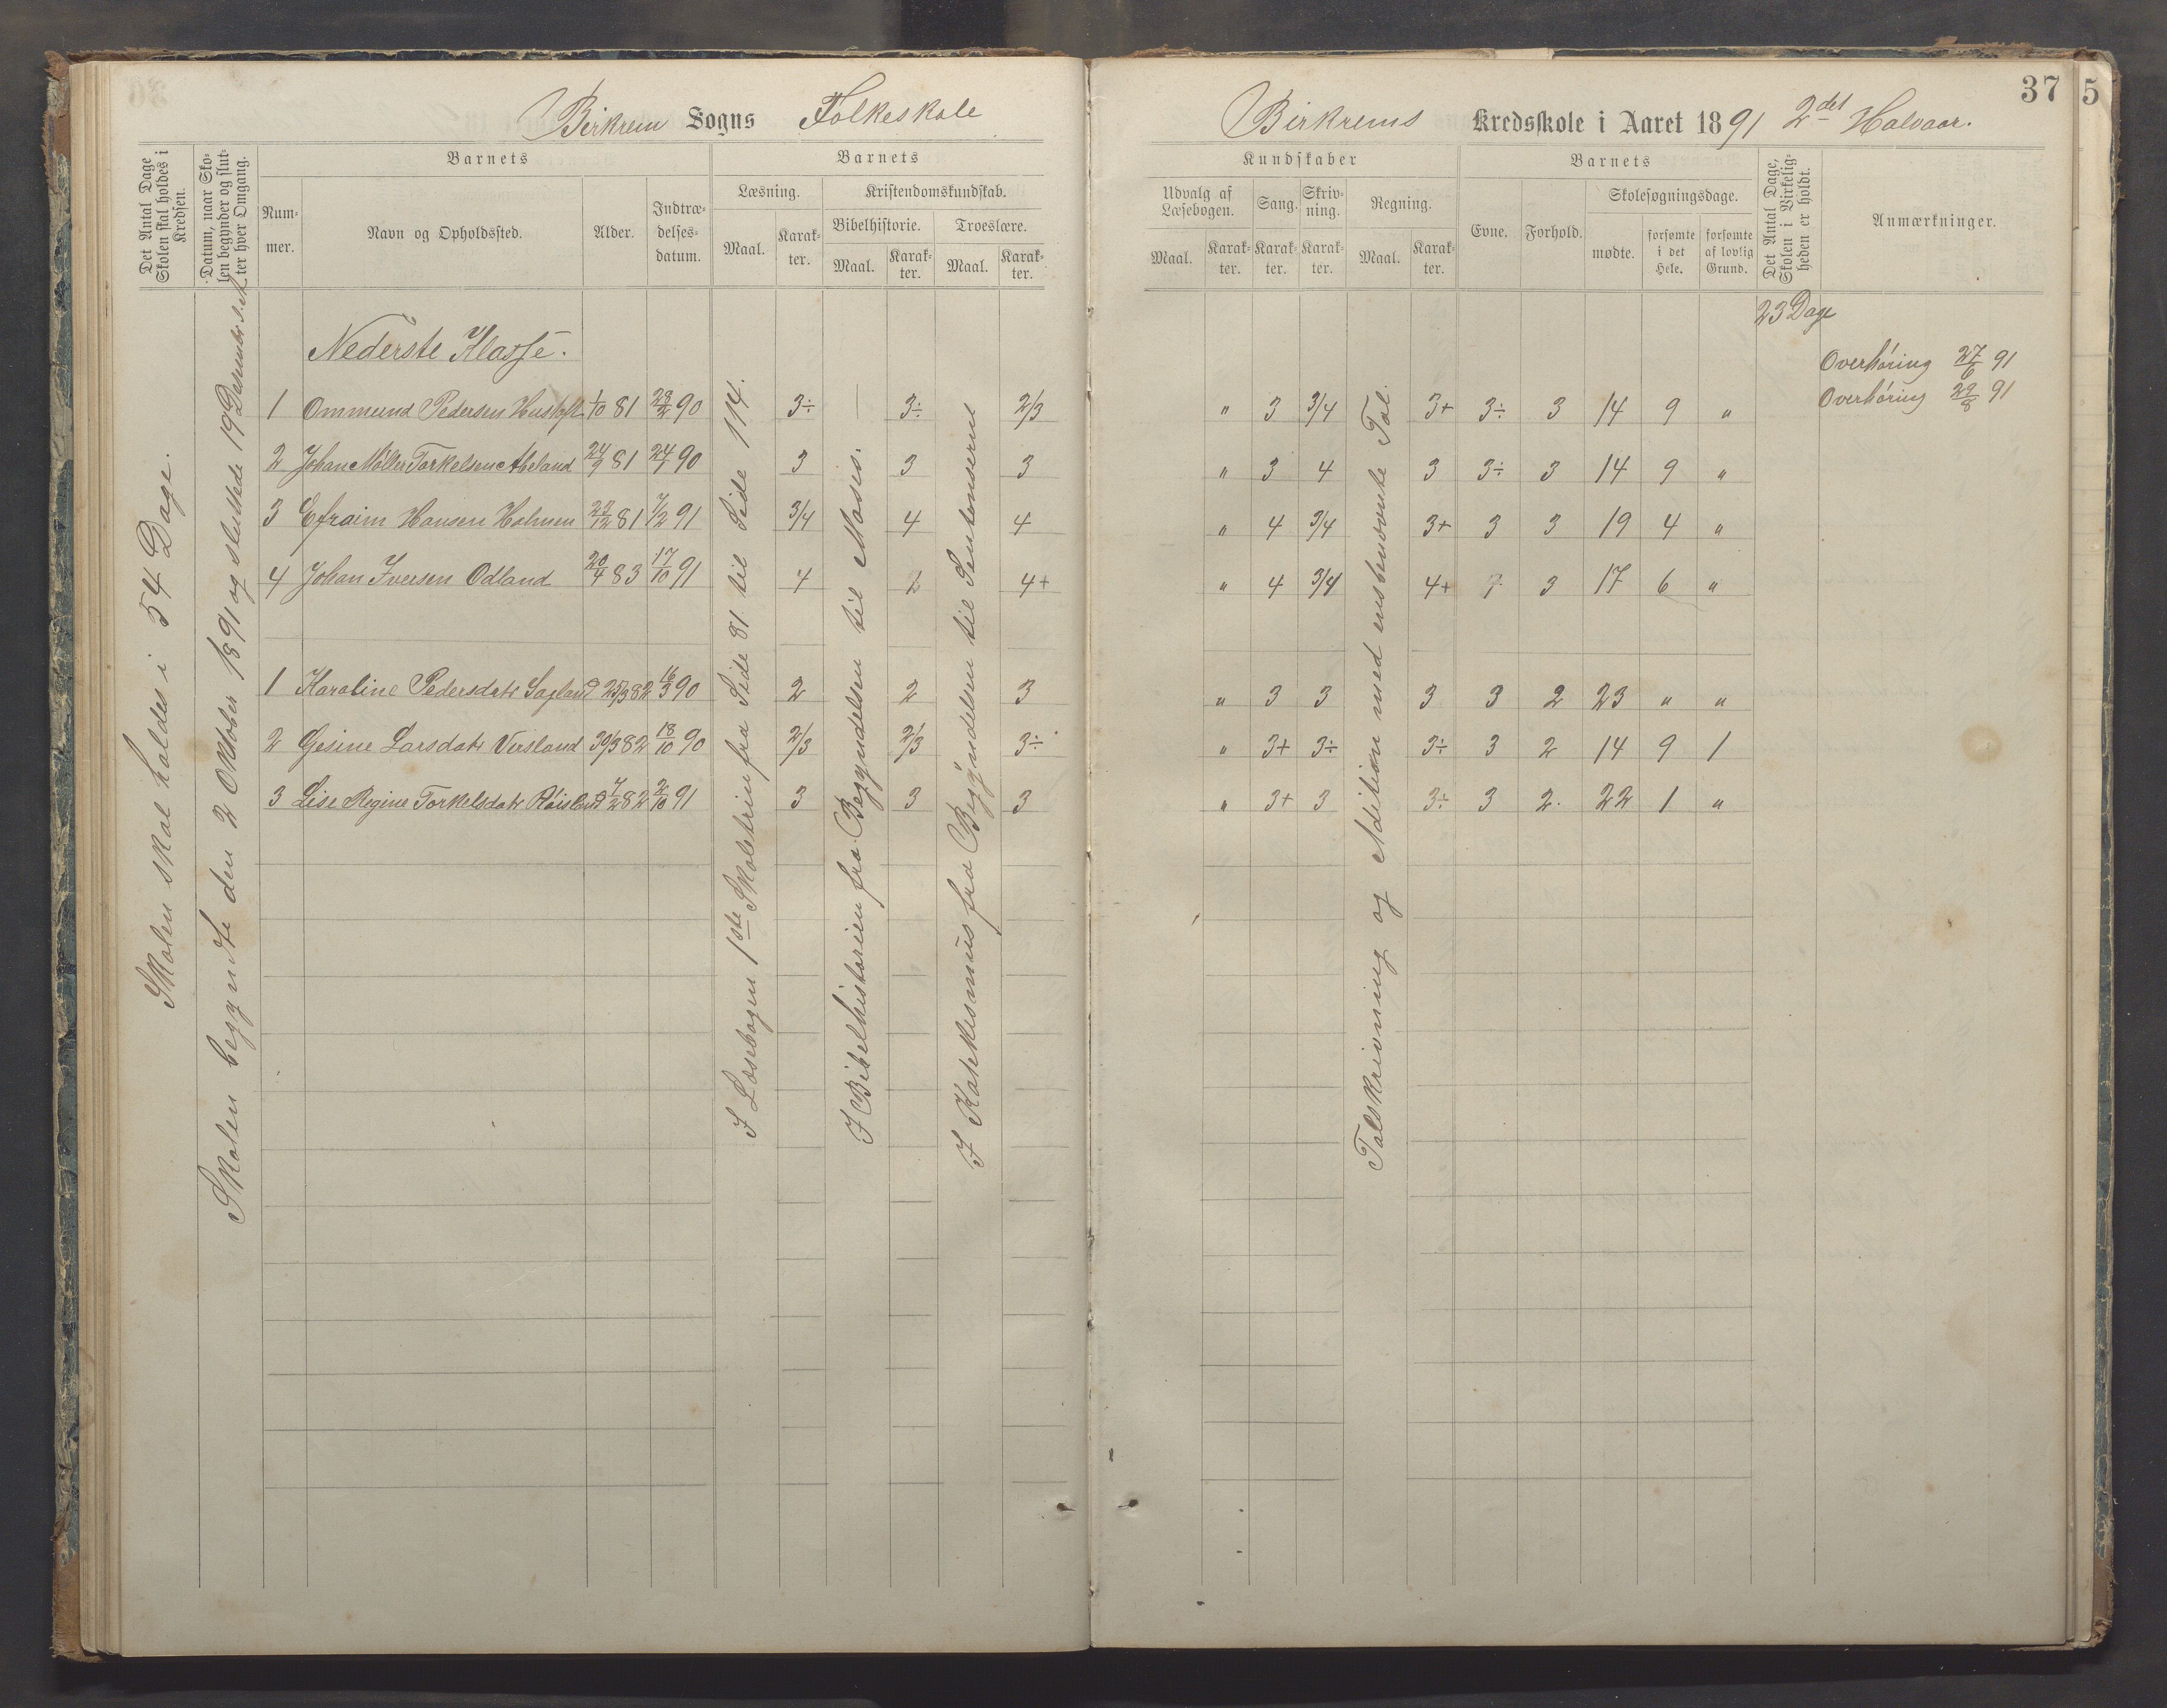 Birkrem Sogns Folkeskole
Det Antal Dage Skolen skal holdes i Kredsen.
Datum, naar Skolen begynder og slutter hver Omgang.
Barnets
Nummer.
Navn og Opholdssted.
Alder.
Indtrædelsesdatum.
Barnets
Læsning.
Maal.
Karakter.
Kristendomskundskab.
Bibelhistorie.
Maal.
Karakter.
Troeslære.
Maal.
Karakter.
Skolen skal holdes i 54 Dage.
Skolen begyndte den 2 Oktober 1891 og sluttede 19 December s. A.
Nederste Klasse.
1 Ommund Pedersen Hustoft 1/10 81 23/2 90 3÷ — 3÷ 2/3
2 Johan Møller Torkelsen Abeland 24/9 81 24/1 90 3 3 3
3 Efraim Hansen Holmen 22/12 81 7/2 91 3/4 4 4
4 Johan Iversen Odland 20/4 83 17/10 91 4 4+
1 Karoline Pedersdatr Sagland 25/3 82 16/3 90 2 2 3
2 Gesine Larsdatr Versland 30/3 82 18/10 90 2/3 2/3 3÷
3 Lise Regine Torkelsdatr 7/2 82 2/10 91 3 3 3
I Læsebogen 1ste Skoletrin fra Side 81 til Side 114.
I Bibelhistorien fra Begyndelsen til Moses.
I Katekismus fra Begyndelsen til
37
5
Birkrems Kredsskole i Aaret 1891 2det Halvaar.
Kundskaber
Udvalg af Læsebogen.
Maal.
Karakter.
Sang.
Karakter.
Skrivning.
Karakter.
Regning.
Maal.
Karakter.
Barnets
Evne.
Forhold.
Skolesøgningsdage.
mødte.
forsømte i det Hele.
forsømte af lovlig Grund.
Det Antal Dage, Skolen i Virkeligheden er holdt.
Anmærkninger.
23 Dage
Overhøring 27/6 91
Overhøring 29/8 91
" 3 3/4 3+ 3÷ 3 14 9 "
" 3 4 3 3÷ 3 14 9 "
" 4 3/4 3+ 3 3 19 4 "
" 4 3/4 4+ 3 17 6 "
" 3 3 3 3 2 23 " "
" 3+ 3÷ 3÷ 3 2 14 9 1
" 3+ 3 3÷ 3 2. 22 1 "
Talskrivning og Adition med ensbenævnte Tal.